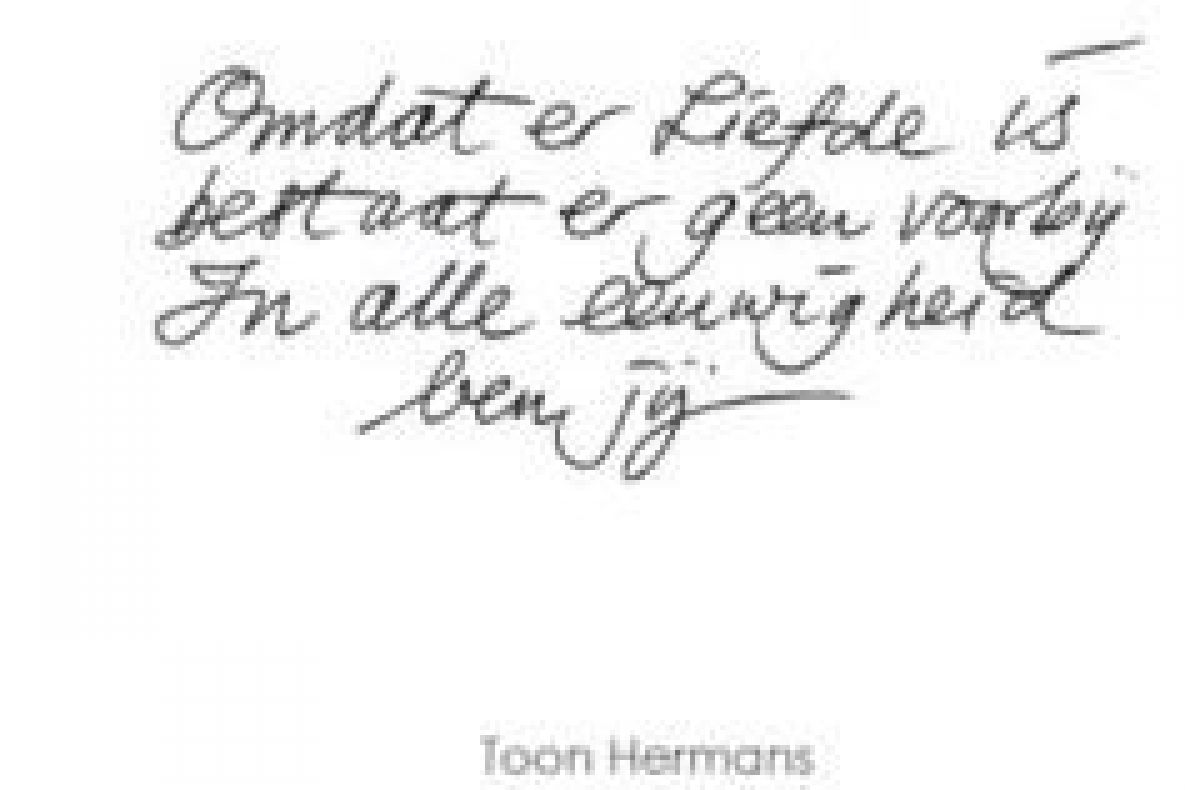 Omdat er Liefde is
bestaat er geen voorbij
In alle eeuwigheid
ben jij
Toon Hermans